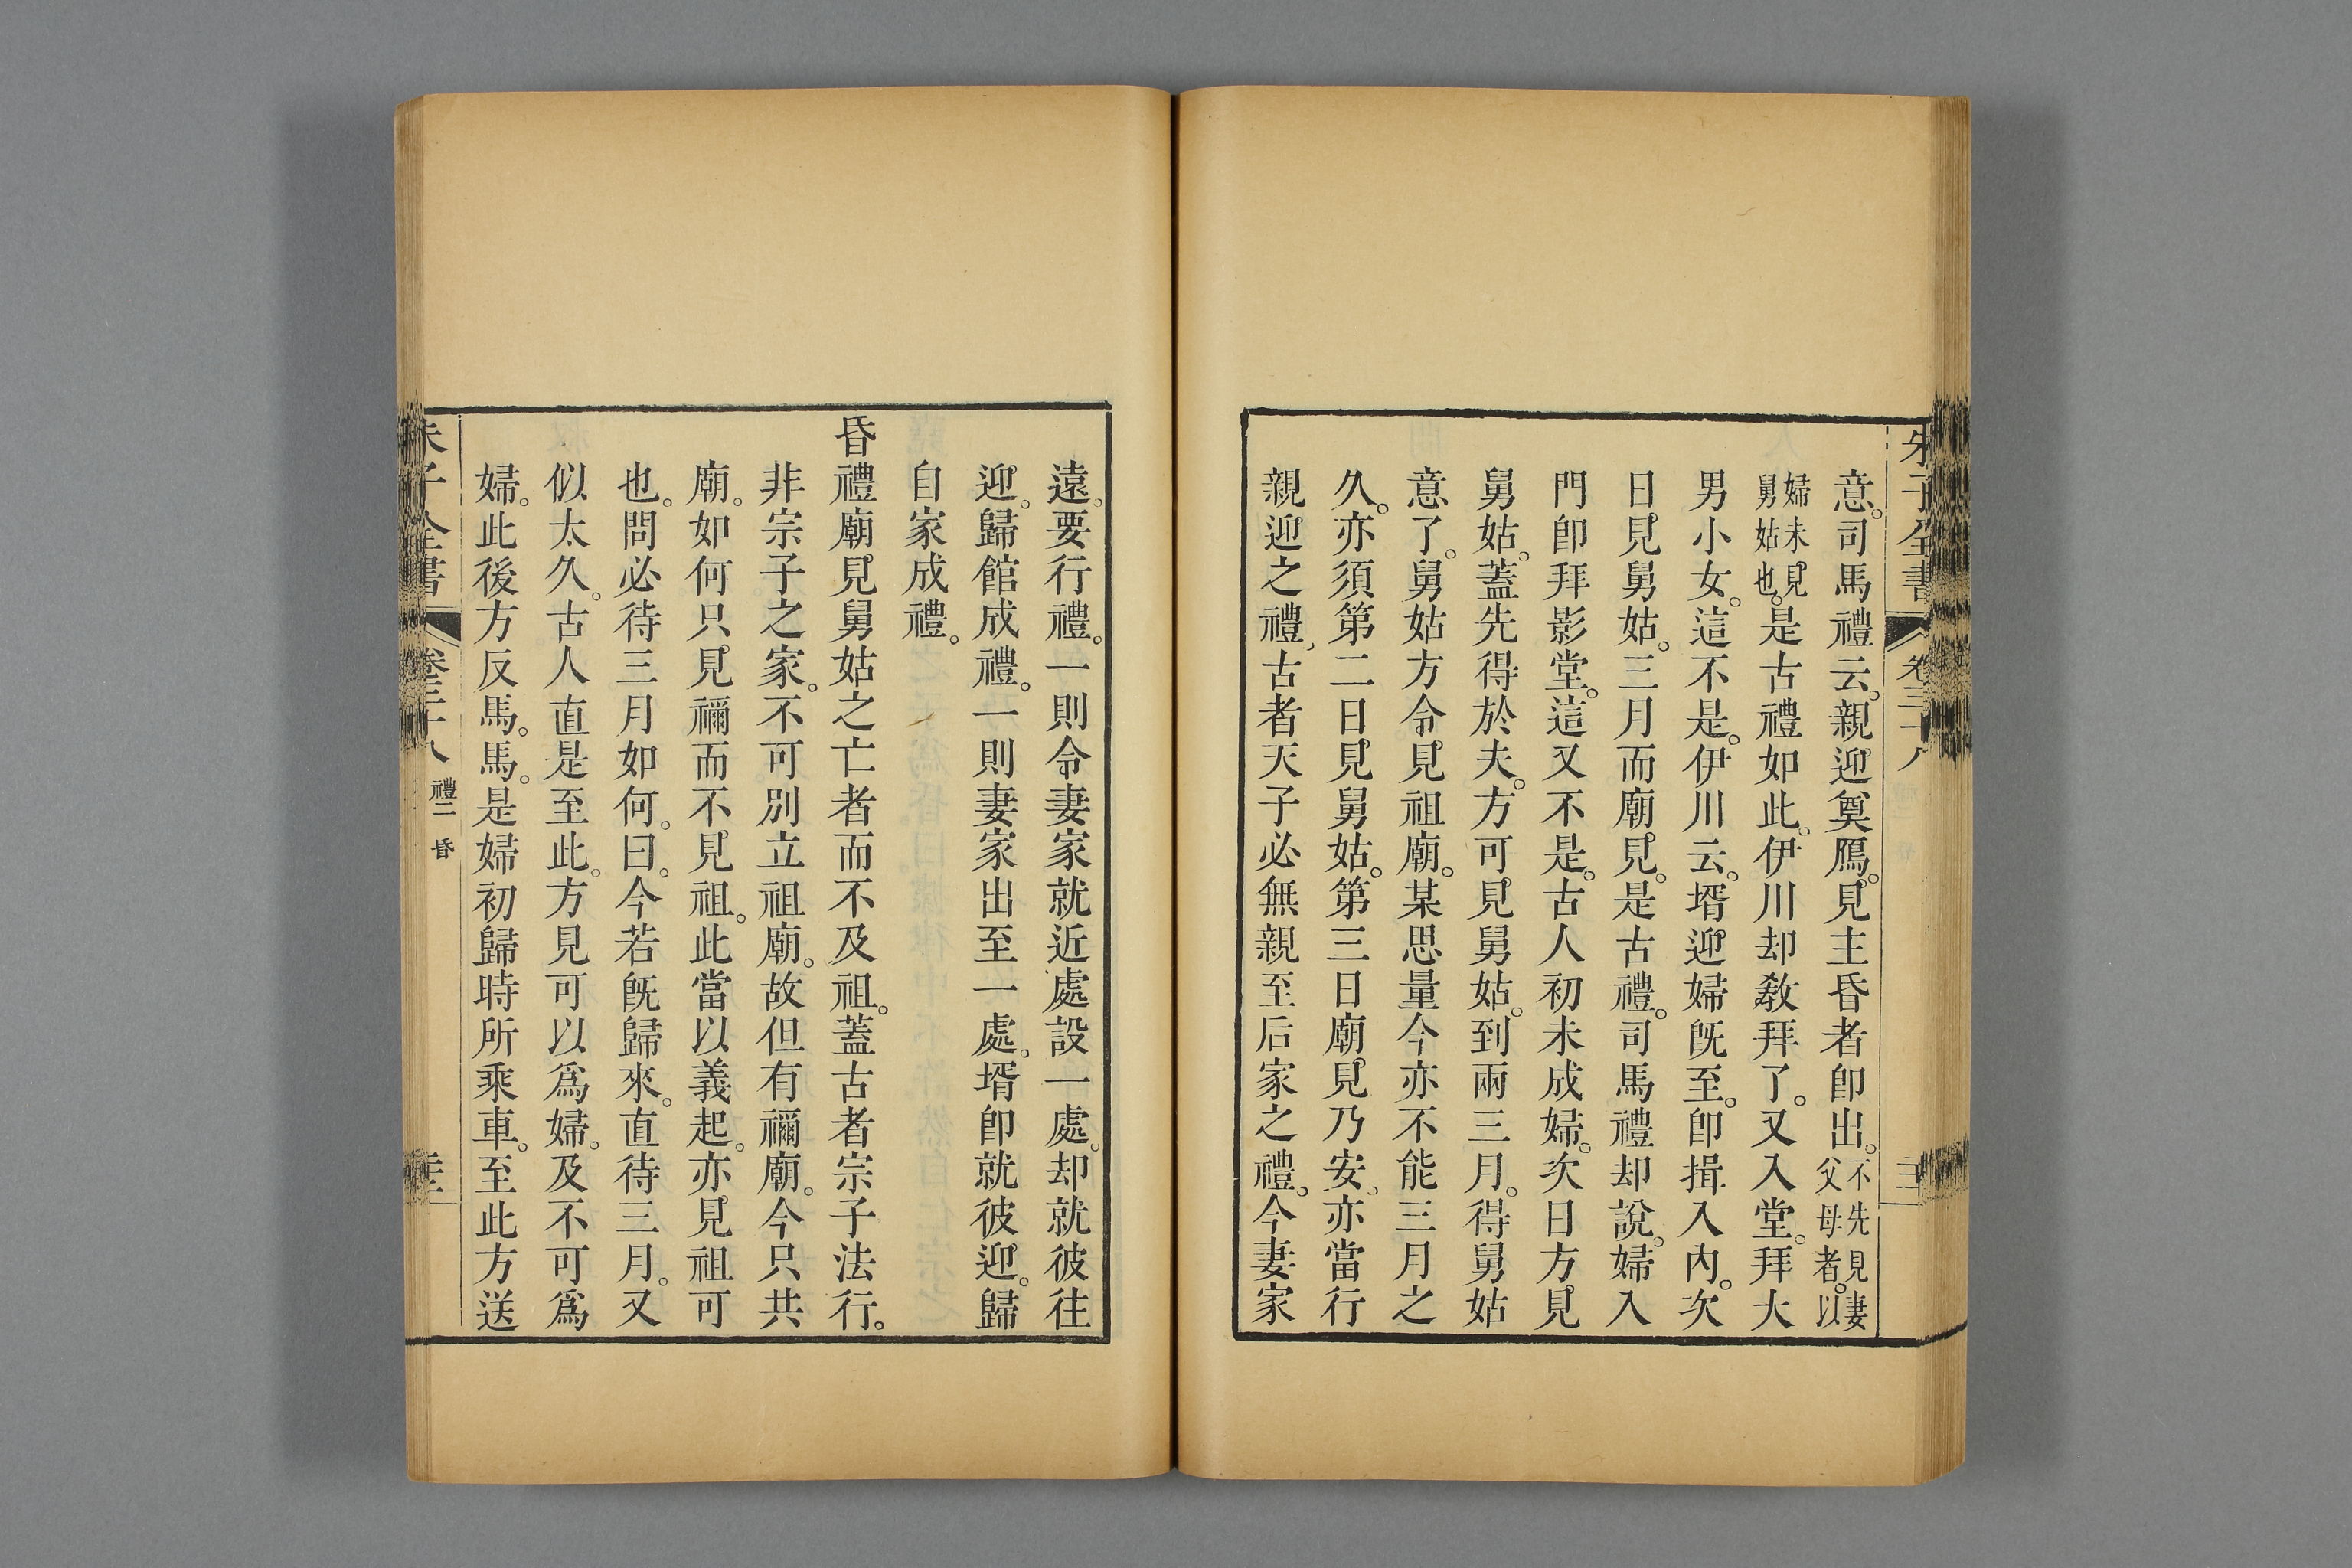 朱子全書 卷三十八
意。司馬禮云。親迎奠鴈。見主昏者卽出。不先見妻父母者。以
婦未見舅姑也。是古禮如此。伊川却敎拜了。又入堂。拜大
男小女。這不是。伊川云。壻迎婦旣至。卽揖入內。次
日見舅姑。三月而廟見。是古禮。司馬禮却說。婦入
門卽拜影堂。這又不是。古人初未成婦。次日方見
舅姑。蓋先得於夫。方可見舅姑。到兩三月。得舅姑
意了。舅姑方令見祖廟。某思量今亦不能三月之
久。亦須第二日見舅姑。第三日廟見乃安。亦當行
親迎之禮。古者天子必無親至后家之禮。今妻家
遠。要行禮。一則令妻家就近處設一處。却就彼往
迎。歸館成禮。一則妻家出至一處。壻卽就彼迎。歸
自家成禮。
昏禮廟見舅姑之亡者而不及祖。蓋古者宗子法行。
非宗子之家。不可別立祖廟。故但有禰廟。今只共
廟。如何只見禰而不見祖。此當以義起。亦見祖可
也。問必待三月如何。曰。今若旣歸來。直待三月。又
似太久。古人直是至此。方見可以爲婦。及不可爲
婦。此後方反馬。馬。是婦初歸時所乘車。至此方送
朱子全書 卷三十八 禮二 昏